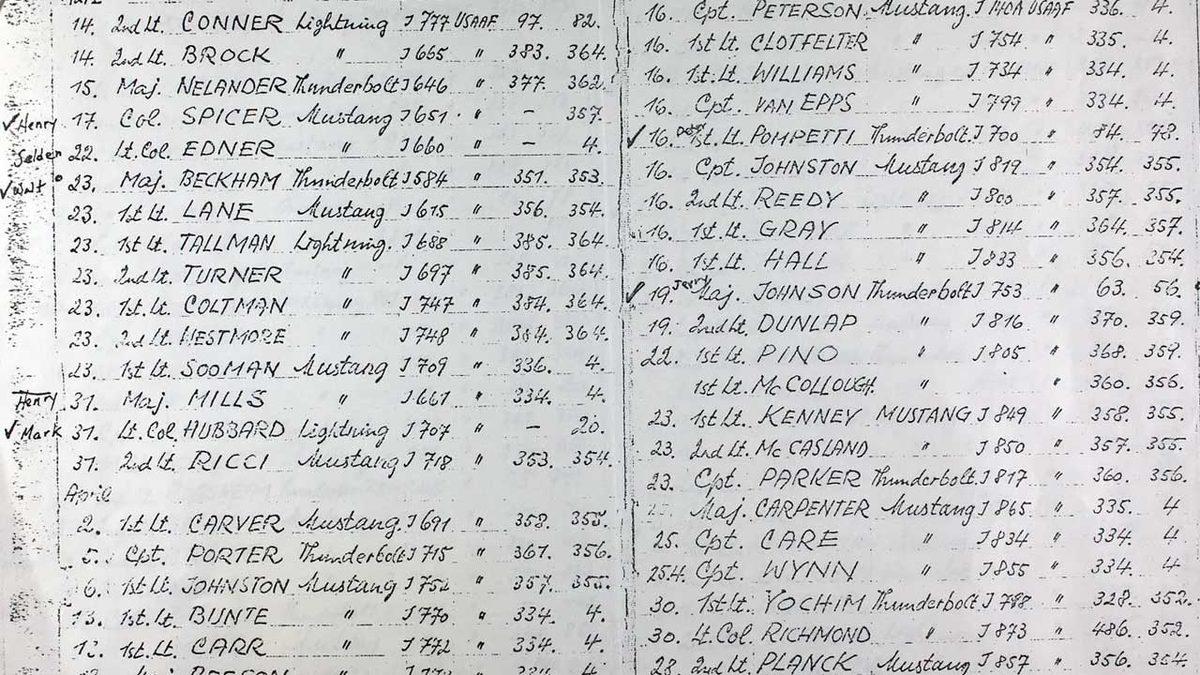 14. 2nd Lt. CONNER Lightning J 777 USAAF 97. 82.
14. 2nd Lt. BROCK " J 665 " 383. 364.
15. Maj. NELANDER Thunderbolt J 646 " 377. 362.
✓ Henry 17. Col. SPICER Mustang J 651 " - 357.
Selden 22. Lt. Col. EDNER " J 660 " - 4.
✓ Walt 23. Maj. BECKHAM Thunderbolt J 584 " 351. 353.
23. 1st Lt. LANE Mustang J 615 " 356. 354.
23. 1st Lt. TALLMAN Lightning. J 688 " 385. 364.
23. 2nd Lt. TURNER " J 697 " 385. 364.
23. 1st Lt. COLTMAN " J 747 " 384. 364.
23. 2nd Lt. WESTMORE " J 748 " 384. 364.
23. 1st Lt. SOOMAN Mustang J 709 " 336. 4.
Henry 31. Maj. MILLS " J 661 " 334. 4.
✓ Mark 31. Lt. Col. HUBBARD Lightning J 707 " - 20.
31. 2nd Lt. RICCI Mustang J 718 " 353. 354.
April
2. 1st Lt. CARVER Mustang. J 691 " 358. 355.
5. Cpt. PORTER Thunderbolt J 715 " 361. 356.
6. 1st Lt. JOHNSTON Mustang J 752 " 357. 355.
13. 1st Lt. BUNTE " J 770 " 334. 4.
1st Lt. CARR " J 772 " 334. 4.
BEESON
16. Cpt. PETERSON Mustang. J USAAF 336. 4.
16. 1st Lt. CLOTFELTER " J 754 " 335. 4.
16. 1st. Lt. WILLIAMS " J 734 " 334. 4.
16. Cpt. VAN EPPS " J 799 " 334. 4.
✓ 16. 1st. Lt. POMPETTI Thunderbolt. J 700 " 84. 78.
16. Cpt. JOHNSTON Mustang J 819 " 354. 355.
16. 2nd Lt. REEDY " J 800 " 357. 355.
16. 1st. Lt. GRAY " J 814 " 364. 357.
16. 1st. Lt. HALL " J 833 " 356. 354.
✓ 19. Jerry Maj. JOHNSON Thunderbolt J 753 " 63. 56.
19. 2nd Lt. DUNLAP " J 816 " 370. 359.
22. 1st Lt. PINO " J 805 " 368. 359.
1st Lt. McCOLLOUGH. " " 360. 356.
23. 1st Lt. KENNEY MUSTANG J 849 " 358. 355.
23. 2nd Lt. McCASLAND " J 850 " 357. 355.
23. Cpt. PARKER Thunderbolt. J 817 " 360. 356.
Maj. CARPENTER Mustang J 865 " 335. 4
25. Cpt. CARE " J 834 " 334. 4
25.4. Cpt. WYNN " J 855 " 334. 4
30. 1st Lt. YOCHIM Thunderbolt J 788 " 328. 352.
30. Lt. Col. RICHMOND " J 873 " 486. 352.
28. 2nd Lt. PLANCK Mustang J 857 " 356. 354.